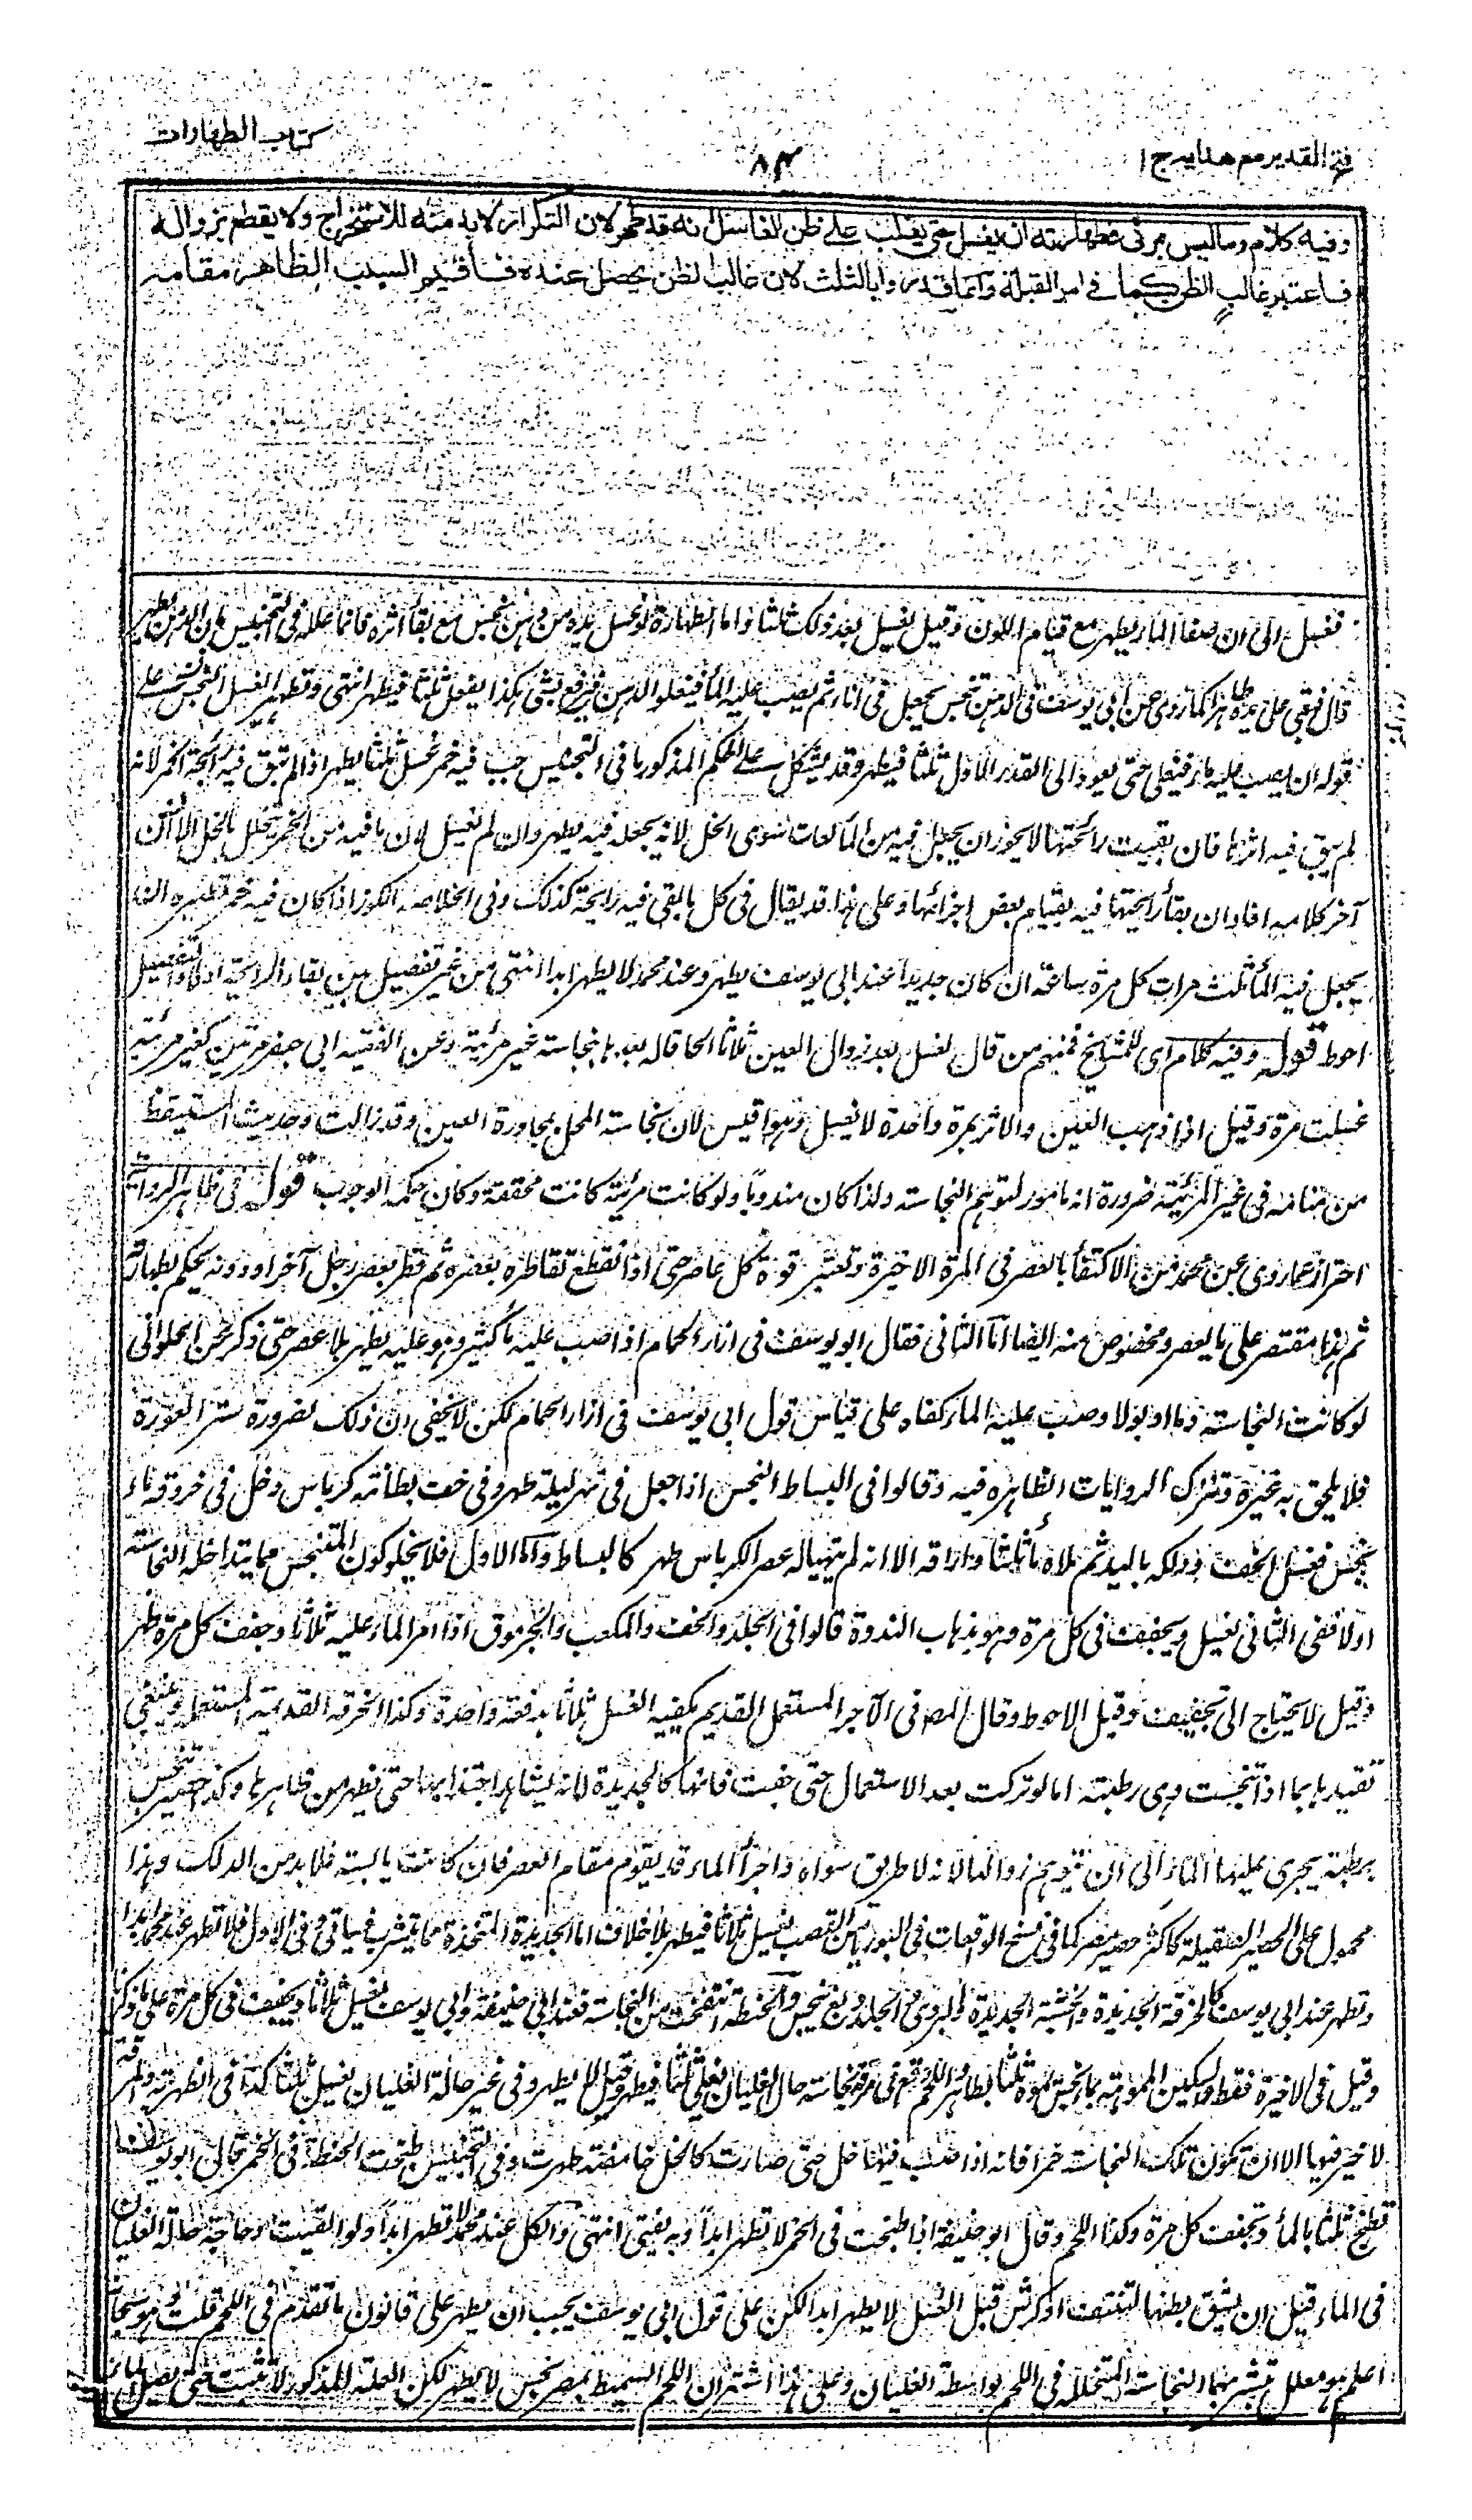 فتح القدير مع هدايه ج ۱
۸۴
كتاب الطهارات
وفيه كلام وما ليس بمرئى فطهارته ان يغسل حتى يغلب على ظن الغاسل انه قد طهر لان التكرار لابد منه للاستخراج ولا يقطع بزواله
فاعتبر غالب الظن كما فى امر القبلة وانما قدروا بالثلث لان غالب الظن يحصل عنده فاقيم السبب الظاهر مقامه
فغسل الى ان صفا الماء يطهر مع قيام اللون وقيل يغسل بعد ذلك ثلثا واما الطهارة لو غسل يده من دهن نجس مع بقاء اثره فانما علله فى التجنيس بان الدهن يطهر
قال فبقى على يده طاهرا كما روى عن ابى يوسف فى الدهن تنجس يجعل فى اناء ثم يصب عليه الماء فيعلو الدهن فيرفع بشئ هكذا يفعل ثلثا فيطهر انتهى وتطهير العسل النجس على
قوله ان يصب عليه ماء فيغلى حتى يعود الى القدر الاول ثلثا فيطهر وقد يشكل على الحكم المذكور ما فى التجنيس حب فيه خمر غسل ثلثا يطهر اذا لم تبق فيه رائحة الخمر لانه
لم يبق فيه اثرها فان بقيت رائحتها لا يجوز ان يجعل فيه من المائعات سوى الخل لانه بجعله فيه يطهر وان لم يغسل لان ما فيه من الخمر يتخلل بالخل الا ان
آخر كلامه افاد ان بقاء رائحتها فيه بقيام بعض اجزائها وعلى هذا قد يقال فى كل ما بقى فيه رائحة كذلك وفى الخلاصة الكوز اذا كان فيه خمر تطهيره ان
يجعل فيه الماء ثلث مرات كل مرة ساعة ان كان جديدا عند ابى يوسف يطهر وعند محمد لا يطهر ابدا انتهى من غير تفصيل بين بقاء الرائحة اولا والتفصيل
احوط قوله وفيه كلام اى للمشايخ فمنهم من قال يغسل بعد زوال العين ثلاثا الحاقا له بعدها بنجاسة غير مرئية وعن الفقيه ابى جعفر مرتين كغير مرئية
غسلت مرة وقيل اذا ذهب العين والاثر بمرة واحدة لا يغسل وهو اقيس لان نجاسة المحل بمجاورة العين وقد زالت وحديث المستيقظ
من منامه فى غير المرئية ضرورة انه مامور لتوهم النجاسة ولذا كان مندوبا ولو كانت مرئية كانت محققة وكان حكمه الوجوب قوله فى ظاهر الرواية
احتراز عما روى عن محمد من الاكتفاء بالعصر فى المرة الاخيرة وتعتبر قوة كل عاصر حتى اذا انقطع تقاطره بعصره ثم قطر بعصر رجل آخر او دونه يحكم بطهارته
ثم هذا مقتصر على ما يعصر ومخصوص منه ايضا اما الثانى فقال ابو يوسف فى ازار الحمام اذا صب عليه ماء كثير وهو عليه يطهر بلا عصر حتى ذكر عن الحلوانى
لو كانت النجاسة دما او بولا وصب عليه الماء كفاه على قياس قول ابى يوسف فى ازار الحمام لكن لا يخفى ان ذلك لضرورة ستر العورة
فلا يلحق به غيره وتترك الروايات الظاهرة فيه وقالوا فى البساط النجس اذا جعل فى نهر ليلة طهر وفى خف بطانته كرباس دخل فى خروقه ماء
نجس فغسل الخف ودلكه باليد ثم ملاه ماء ثلثا واراقه الا انه لم يتهيا له عصر الكرباس طهر كالبساط واما الاول فلا يخلو كون المتنجس مما يتداخله النجاسة
اولا ففى الثانى يغسل ويجفف فى كل مرة وهو بذهاب الندوة قالوا فى الجلد والخف والمكعب والجرموق اذا امر الماء عليه ثلاثا وجفف كل مرة طهر
وقيل لا يحتاج الى تجفيف وقيل الاحوط وقال المصنف فى الآجر المستعمل القديم يكفيه الغسل ثلاثا بدفعة واحدة وكذا الخرقة القديمة المستعملة وينبغى
تقييدها بما اذا تنجست وهى رطبة اما لو تركت بعد الاستعمال حتى جفت فانها كالجديدة لانه يشاهد اجتذابها حتى يظهر من ظاهرها وكذا حصير تنجس
برطبة يجرى عليها الماء الى ان يتوهم زوالها لانه لا طريق سواه واجراء الماء قد يقوم مقام العصر فان كانت يابسة فلابد من الدلك وهذا
محمول على الحصير الصقيلة كاكثر حصير مصر كما فى نسخ الواقعات فى البوريا من القصب يغسل ثلاثا فيطهر بلا خلاف اما الجديدة المتخذة مما يتشرب فسياتى وفى الاول فلا تطهر عند محمد ابدا
وتطهر عند ابى يوسف كالخرقة الجديدة والخشبة الجديدة والبردى والجلد دبغ بنجس والحنطة انتفخت من النجاسة فعند ابى حنيفة وابى يوسف يغسل ثلاثا ويجفف فى كل مرة على ما ذكرنا
وقيل فى الاخيرة فقط والسكين المموهة بماء نجس تموه ثلثا بطاهر واللحم وقع فى مرقه نجاسة حال الغليان يغلى ثلثا فيطهر وقيل لا يطهر وفى غير حالة الغليان يغسل ثلثا كذا فى الظهيرية والمرقة
لا خير فيها الا ان تكون تلك النجاسة خمرا فانه اذا صب فيها خل حتى صارت كالخل حامضة طهرت وفى التجنيس طبخت الحنطة فى الخمر قال ابو يوسف
تطبخ ثلثا بالماء وتجفف كل مرة وكذا اللحم وقال ابو حنيفة اذا طبخت فى الخمر لا تطهر ابدا وبه يفتى انتهى والكل عند محمد لا تطهر ابدا ولو القيت دجاجة حالة الغليان
فى الماء قبل ان يشق بطنها لتنتف او كرش قبل الغسل لا يطهر ابدا لكن على قول ابى يوسف يجب ان يطهر على قانون ما تقدم فى اللحم قلت وهو سبحانه
اعلم هو معلل بتشربها النجاسة المتخللة فى اللحم بواسطة الغليان وعلى هذا اشتهر ان اللحم السميط بمصر نجس لا يطهر لكن العلة المذكورة لا تثبت حتى يصل الماء